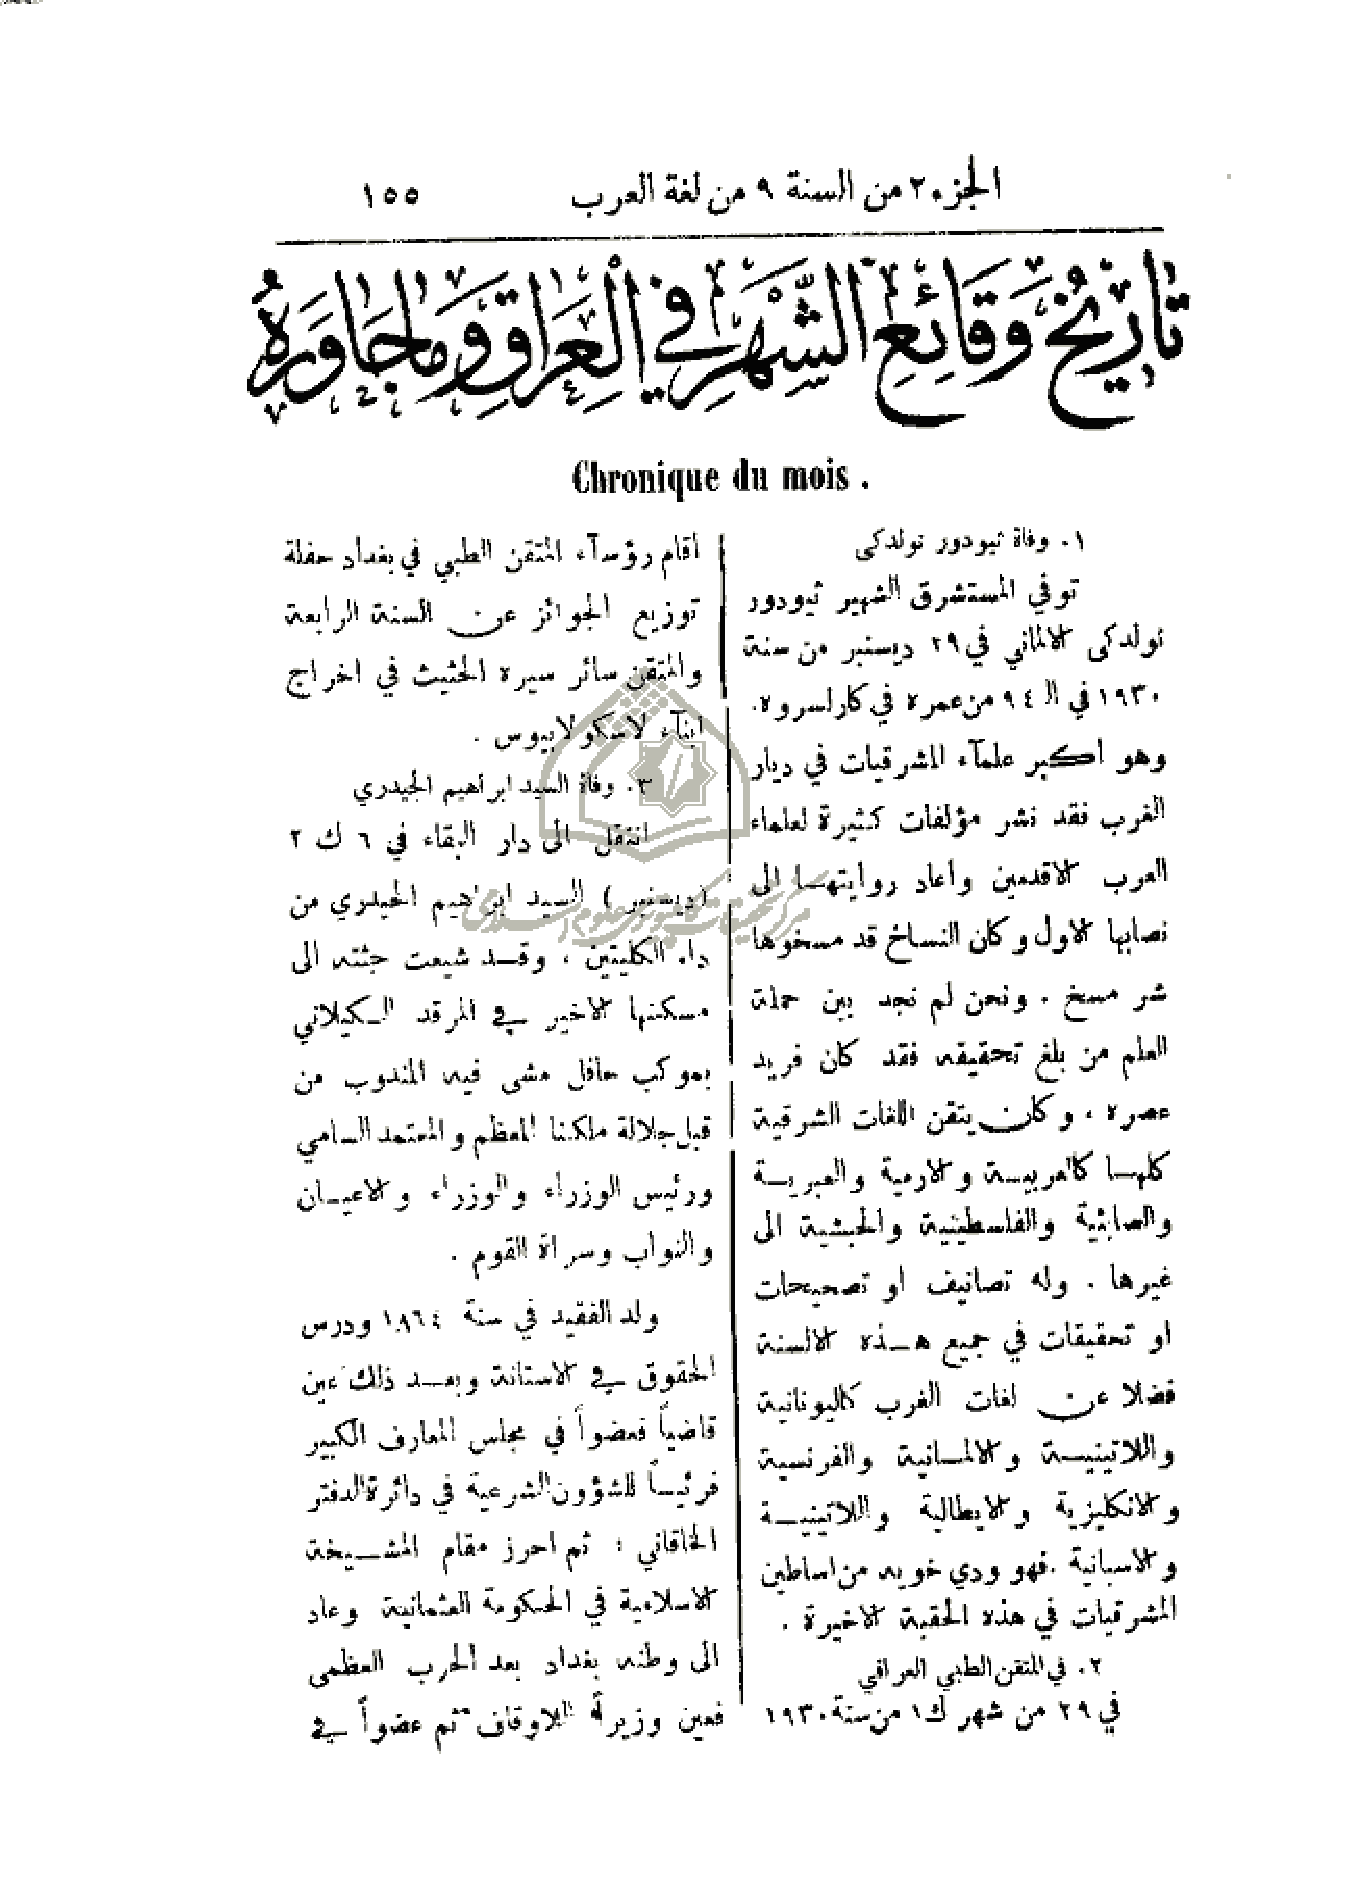 الجزء ٢ من السنة ٩ من لغة العرب
١٥٥
تاريخ وقائع الشهر في العراق وما جاوره
Chronique du mois .
١. وفاة ثيودور نولدكى
توفي المستشرق الشهير ثيودور
نولدكى الالماني في ٢٩ ديسنبر من سنة
١٩٣٠ في الـ ٩٤ من عمره في كارلسروه.
وهو أكبر علمآء المشرقيات في ديار
الغرب فقد نشر مؤلفات كثيرة لعلماء
العرب الاقدمين وأعاد روايتهـا الى
نصابها الاول وكان النساخ قد مسخوها
شر مسخ . ونحن لم نجد بين حملة
العلم من بلغ تحقيقه فقد كان فريد
عصره ، وكان يتقن اللغات الشرقية
كلهـا كالعربيـة والارمية والعبريـة
والصابئية والفلسطينية والحبشية الى
غيرها . وله تصانيف او تصحيحات
او تحقيقات في جميع هـذه الالسنة
فضلا عن لغات الغرب كاليونانية
واللاتينيـة والالمـانية والفرنسية
والانكليزية والايطالية واللاتينيـة
والاسبانية .فهو ودي خويه من اساطين
المشرقيات في هذه الحقبة الاخيرة .
٢. في المتقن الطبي العراقي
في ٢٩ من شهر ك١ من سنة ١٩٣٠
أقام رؤسآء المتقن الطبي في بغداد حفلة
توزيع الجوائز عن السنة الرابعة
والمتقن سائر سيره الحثيث في اخراج
ابنآء لاسكولابيوس .
٣. وفاة السيد ابراهيم الحيدري
انتقل الى دار البقاء في ٦ ك ٢
(ديسنبر) السيد ابراهيم الحيدري من
داء الكليتين ، وقـد شيعت جثته الى
مسكنها الاخير في المرقد الـكيلاني
بموكب حافل مشى فيه المندوب من
قبل جلالة ملكنا المعظم والمعتمد السامي
ورئيس الوزراء والوزراء والاعيـان
والنواب وسراة القوم .
ولد الفقيد في سنة ١٨٦٤ ودرس
الحقوق في الاستانة وبعـد ذلك عين
قاضياً فعضواً في مجلس المعارف الكبير
فرئيساً للشؤون الشرعية في دائرة الدفتر
الخاقاني ؛ ثم احرز مقام المشـيخة
الاسلامية في الحكومة العثمانية وعاد
الى وطنه بغداد بعد الحرب العظمى
فعين وزيرة للاوقاف ثم عضواً في
مركز تحقيقات كامپيوتری علوم اسلامی